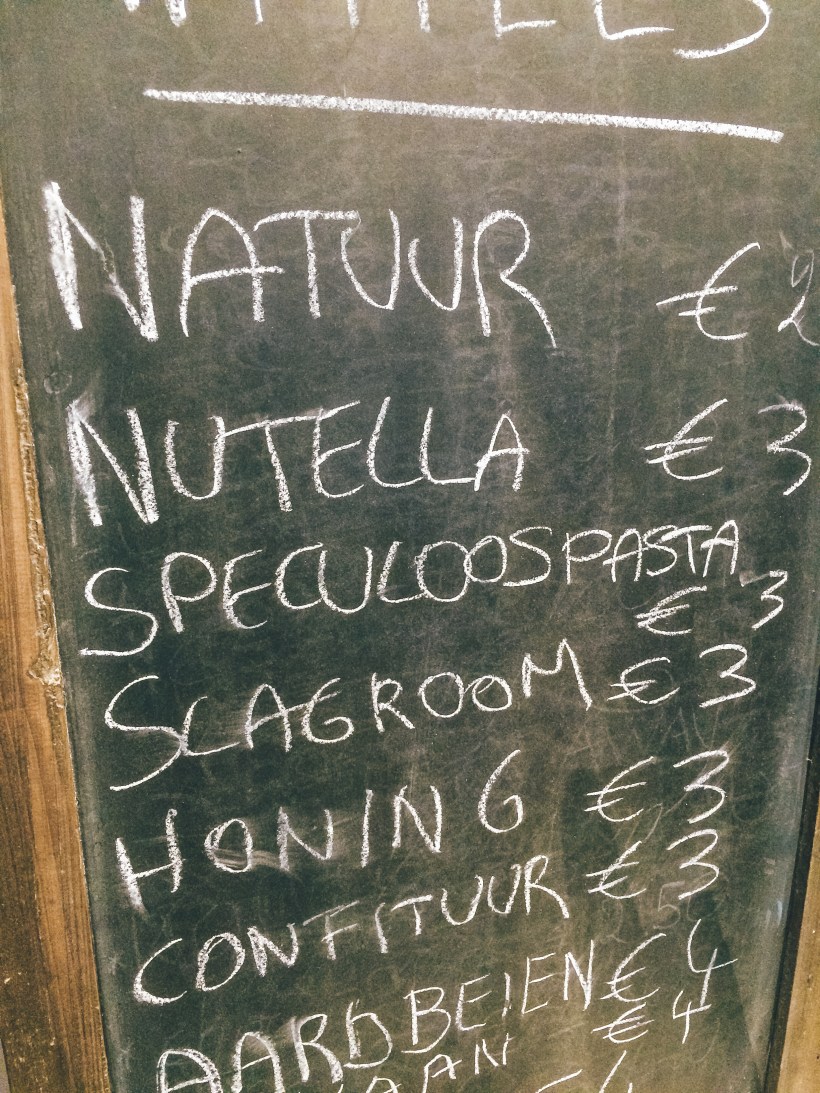 NATUUR € 2
NUTELLA € 3
SPECULOOSPASTA
€ 3
SLAGROOM € 3
HONING € 3
CONFITUUR € 3
AARDBEIEN € 4
€ 4